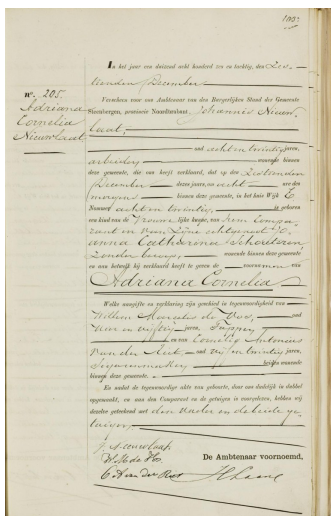 In het jaar een duizend acht honderd zes en tachtig, den Zes-
tienden December
Verscheen voor ons Ambtenaar van den Burgerlijken Stand der Gemeente
Steenbergen, provincie Noordbrabant, Johannis Nieuw-
laat,
no. 205.
Adriana
Cornelia
Nieuwlaat
oud acht en twintig jaren,
arbeider, wonende binnen
deze gemeente, die ons heeft verklaard, dat op den Zestienden
December dezes jaars, om acht ure des
morgens binnen deze gemeente, in het huis Wijk E
Nummer acht en twintig, is geboren
een kind van de Vrouwelijke kunne, van hem Compa-
rant en van zijne echtgenoot Jo-
anna Catharina
zonder beroep, wonende binnen deze gemeente
en aan hetwelk hij verklaard heeft te geven de voornamen van
Adriana Cornelia
Welke aangifte en verklaring zijn geschied in tegenwoordigheid van
Willem Marcelis de Vos, oud
vier en vijftig jaren, Tapper
en van Cornelis Antonius
van der Riet, oud vijf en twintig jaren,
Sigarenmaker, beiden wonende
binnen deze gemeente.
En nadat de tegenwoordige akte van geboorte, daar van dadelijk in dubbel
opgemaakt, en aan den Comparant en de getuigen is voorgelezen, hebben wij
dezelve geteekend met den vader en de beide ge-
tuigen.
J. Nieuwlaat
W. M. de Vos
C. A. van der Riet
De Ambtenaar voornoemd,